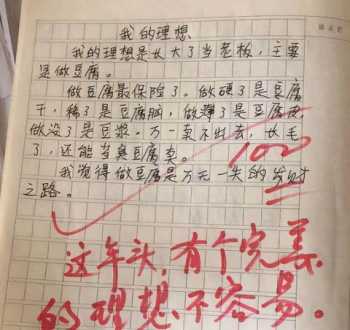 我的理想
我的理想是长大了当老板,主要
是做豆腐。
做豆腐最保险了。做硬了是豆腐
干,稀了是豆腐脑,做薄了是豆腐皮,
做没了是豆浆。万一卖不出去,长毛
了,还能当臭豆腐卖。
我觉得做豆腐是万无一失的发财
之路。
100
这年头,有个完美
的理想不容易。